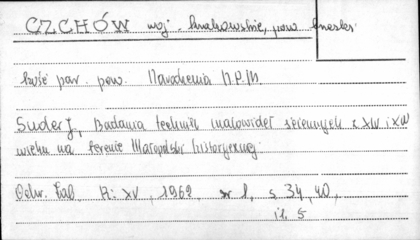 CZCHÓW woj. krakowskie, pow. brzeski
kość par. pow. Narodzenia N.P.M.
Suder J., Badania technik malowideł ściennych z XIV i XV
wieku na terenie Małopolski historycznej.
Ochr. Zab. R: XV, 1962, nr 1, s. 34, 40,
il. 5